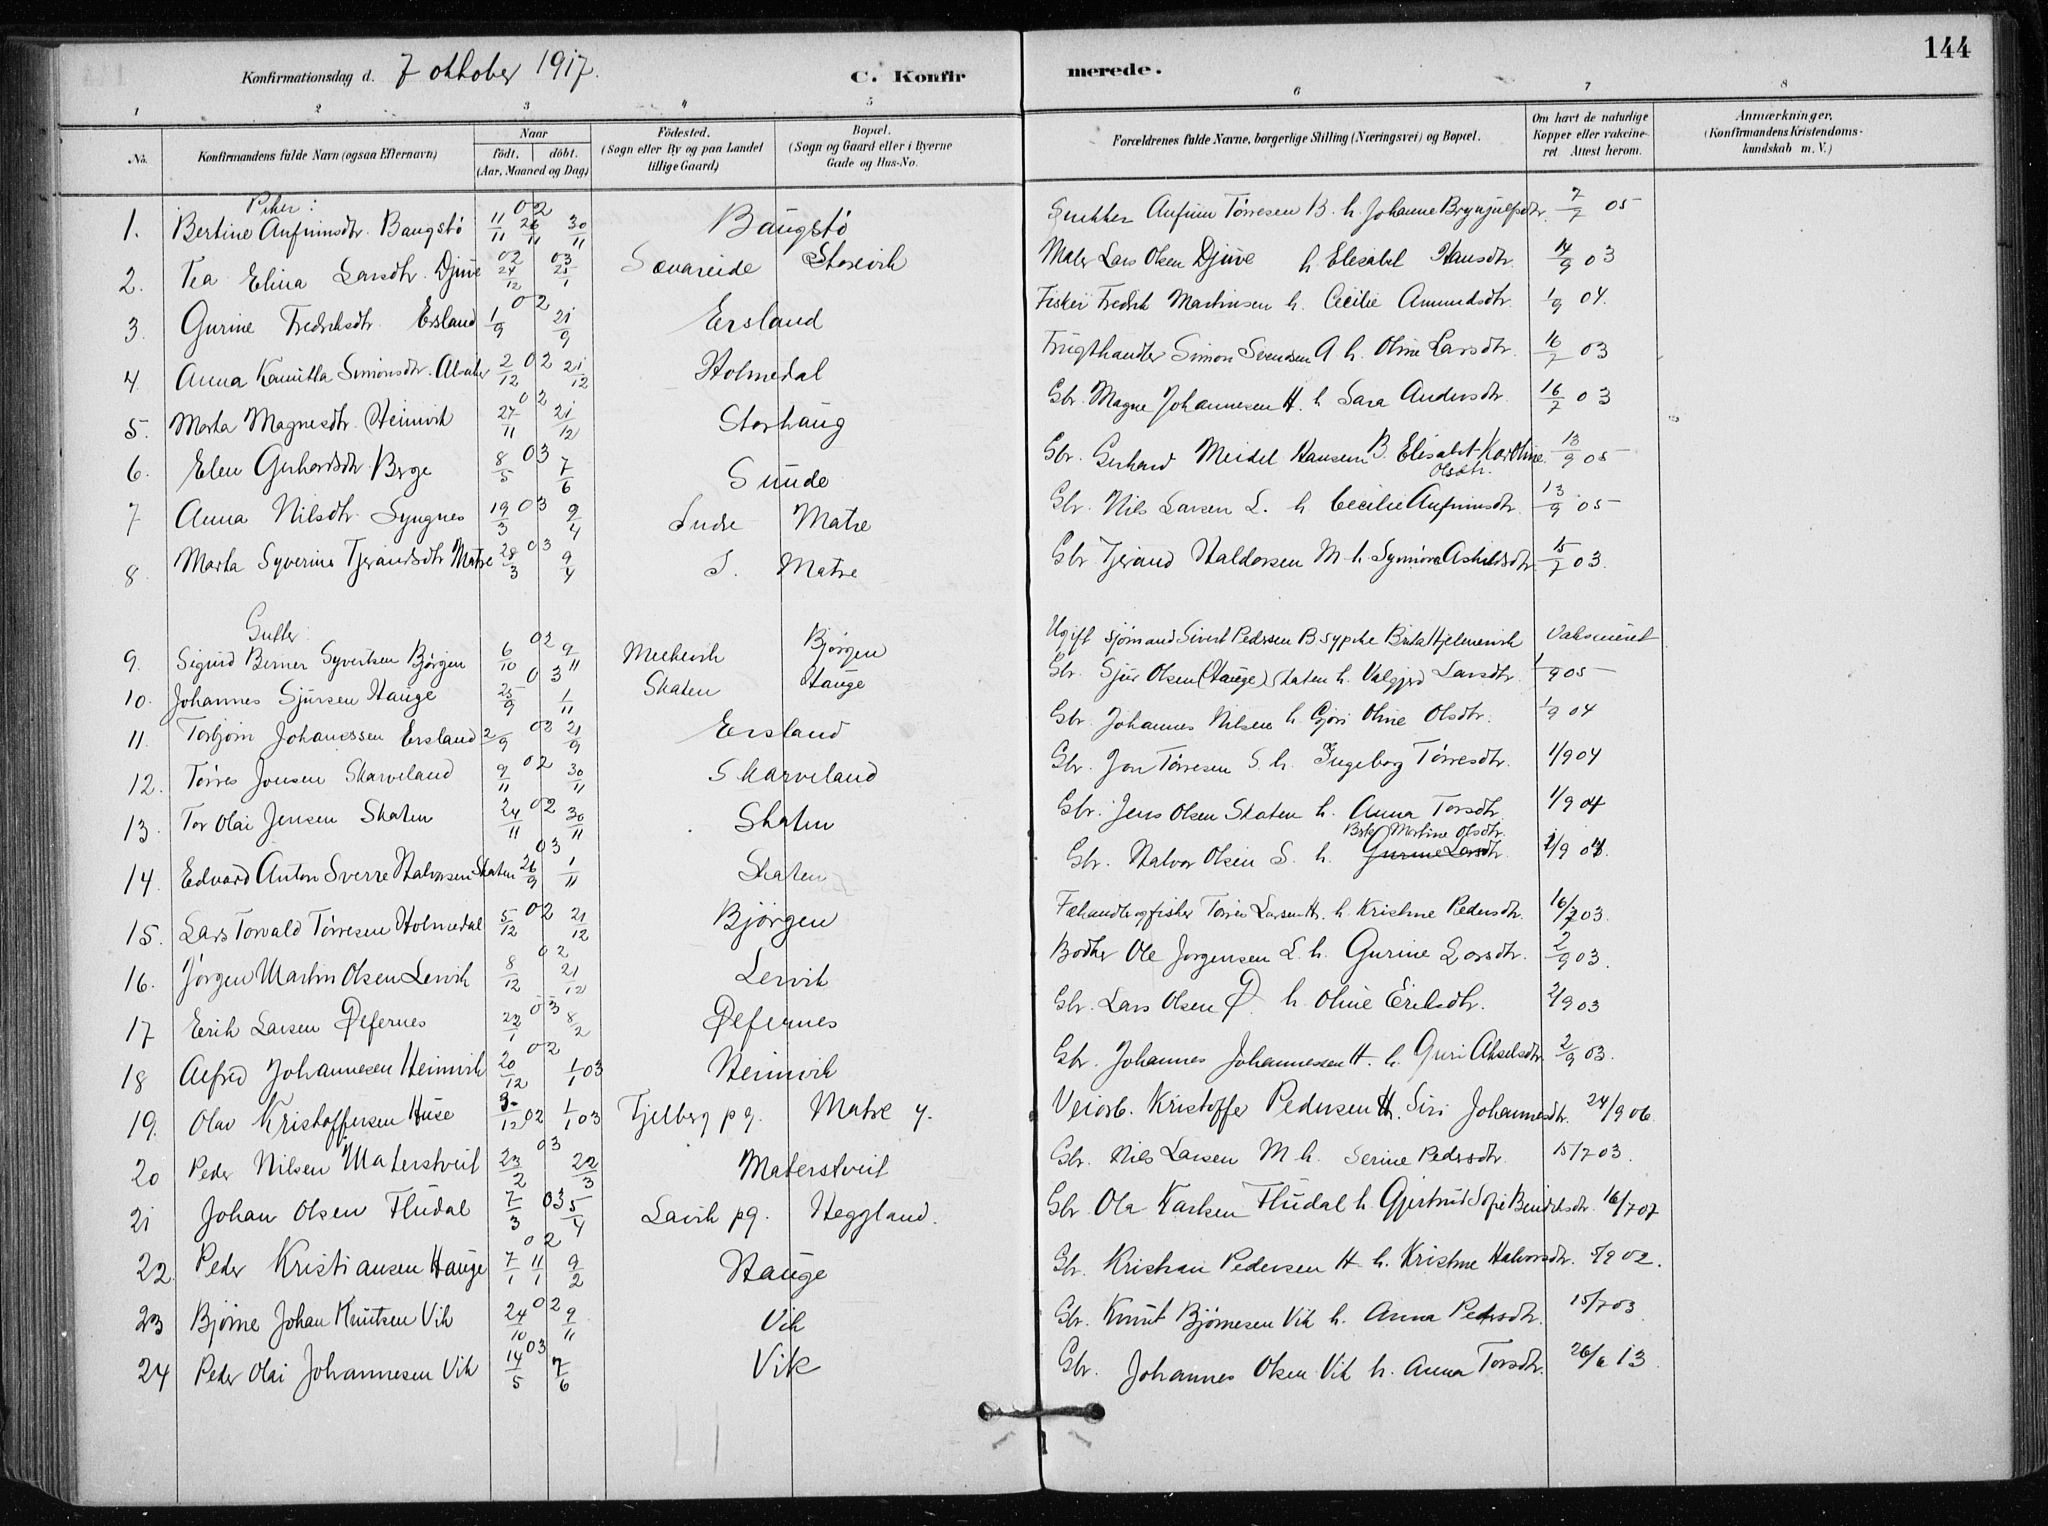 144
Konfirmationsdag d. 7 oktober 1917. C. Konfirmerede.
1 2 3 4 5 6 7 8
No. Konfirmandens fulde Navn (ogsaa Efternavn) Naar født. døbt. (Aar, Maaned og Dag) Fødested. (Sogn eller By og paa Landet tillige Gaard) Bopæl. (Sogn og Gaard eller i Byerne Gade og Hus-No. Forældrenes fulde Navne, borgerlige Stilling (Næringsvei) og Bopæl. Om havt de naturlige Kopper eller vakcineret Attest herom. Anmærkninger, (Konfirmandens Kristendomskundskab m. V.)
Piker:
1. Bertine Anfinnsdtr. Baugstø 02 26/11 30/11 Baugstø Snekker Anfinn Tørresen B. h. Johanne Brynjulfsdtr. 7/7 05
2. Tea Elina Larsdtr. Djuve 02 24/12 03 25/1 Sævareide Storevik Maler Lars Olsen Djuve h. Elisabet Hansdtr. 14/9 03
3. Gurine Fredriksdtr. Ersland 1/9 02 21/9 Ersland Fisker Fredrik Martinsen h. Cecilie Amundsdtr. 1/9 04.
4. Anna Kamilla Simonsdtr. 2/12 02 21/12 Holmedal Frugthandler Simon Svendsen A h. Oline Larsdtr. 16/7 03
5. Marta Magnesdtr. Heimvik 27/11 02 21/12 Storhaug Gbr. Magne Johannesen H. h Sara Andersdtr. 16/7 03
6. Elen Gerhardsdtr Berge 8/5 03 7/6 Sunde Gbr. Gerhard Meidel Hansen B. Elisabet Karoline Olsdtr. 13/9 05
7 Anna Nilsdtr Lyngnes 19/3 03 9/4 Indre Matre Gbr. Nils Larsen L. h Cecilie Anfinnsdtr. 13/9 05
8 Marta Syverine Tjerandsdtr Matre 28/3 03 9/4 I. Matre Gbr Tjerand Haldorsen M. h. Synnøva Askildsdtr. 15/7 03.
Gutter
9. Sigurd Berner Syvertsen Bjørgen 6/10 02 9/11 Mehevik Bjørgen Ugift sjømand Sivert Pedersen B sypike Brita Hjelmevik Vaksineret
10. Johannes Sjursen Hauge 25/9 03 1/11 Skaten Hauge Gbr. Sjur Olsen (Hauge) Skaten h. Valgjerd Larsdtr. 1/9 05
11. Torbjørn Johanessen Ersland 2/9 03 21/9 Ersland Gbr. Johannes Nilsen h. Gjøri Oline Olsdtr. 1/9 04
12. Tørres Jonsen Skarveland 9/11 02 30/11 Skarveland Gbr. Jon Tørresen S. h. Ingeborg Tørresdtr. 1/9 04
13. Tor Olai Jensen Skaten 24/11 02 30/11 Skaten Gbr. Jens Olsen Skaten h. Anna Torsdtr. 1/9 04
14. Edvard Anton Sverre Halvorsen Skaten 26/9 03 1/11 Skaten Gbr. Halvor Olsen S. h. Gurine Larsdtr. Martine Olsdtr. 1/9 04.
15. Lars Torvald Tørresen Holmedal 5/12 02 21/12 Bjørgen Fehandler og fisker Tørres Larsen H. h. Kristine Pedersdtr. 16/7 03.
16. Jørgen Martin Olsen Lervik 8/12 02 21/12 Lervik Bødker Ole Jørgensen L. h. Gurine Larsdtr. 2/9 03.
17 Erik Larsen Øefernes 22/1 03 8/2 Øefernes Gbr. Lars Olsen Ø. h. Oline Eriksdtr. 2/9 03
18 Alfred Johannesen Heimvik 20/12 02 1/1 03 Heimvik Gbr. Johannes Johannessen H. h. Guri Akselsdtr. 2/9 03.
19. Olav Kristoffersen Huse 9/12 02 1/1 03 Fjelberg pg. Matre y. Veiarb. Kristoffer Pedersen H. Siri Johannesdtr. 24/9 06.
20 Peder Nilsen Materstveit 23/2 03 22/3 Materstveit Gbr. Nils Larsen M h. Serine Pedersdtr. 15/7 03.
21 Johan Olsen Fludal 7/3 03 5/4 Lavik pg. Heggland. Gbr. Ola Karlsen Fludal h. Gjertrud Sofie Bendiksdtr. 16/7 07
22. Peder Kristiansen Hauge 7/1 11/1 02 9/2 Hauge Gbr. Kristian Pedersen H. h. Kristine Halvorsdtr. 5/9 02.
23 Bjørne Johan Knutsen Vik 24/10 02 9/11 Vik Gbr. Knut Bjørnesen Vik h. Anna Pedersdtr. 15/7 03.
24 Peder Olai Johannesen Vik 14/5 03 7/6 Vik Gbr. Johannes Olsen Vik h. Anna Torsdtr. 26/6 13.